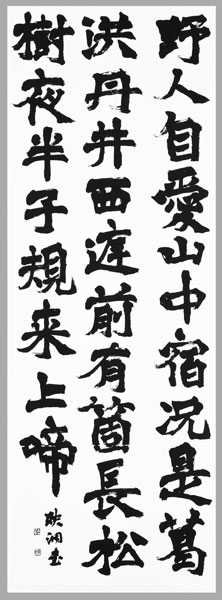 野人自愛山中宿況是葛
洪丹井西庭前有箇長松
樹夜半子規来上啼